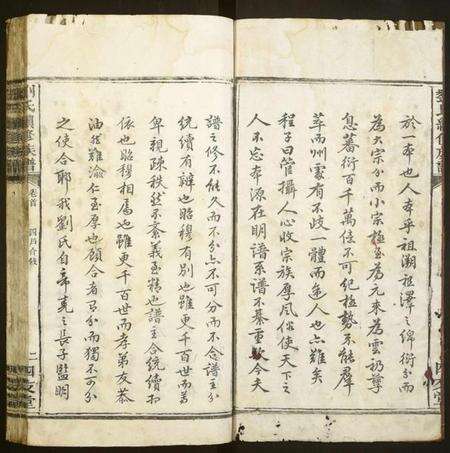 於一本也人本乎祖溯祖澤之綿衍分而
為大宗分而小宗極至為元來為雲礽孳
息蕃衍百千萬億不可紀極勢不能羣
萃而州處有不歧一體而途人也亦難矣
程子曰管攝人心收宗族厚風俗使天下之
人不忘本源在明譜系譜不綦重歟今夫
譜之修不能久而不分亦不可分而不合譜之
統續有辨也昭穆有別也雖更千百世而尊
卑親疎秩然不紊義至精也譜之合統續相
依也昭穆相屬也雖更千百世而孝弟友恭
油然難渝仁至厚也顧合者可分而獨不可分
之使合耶我劉氏自帝堯之長子監明
氏續修族譜
卷首
四戶合修
二
四友堂